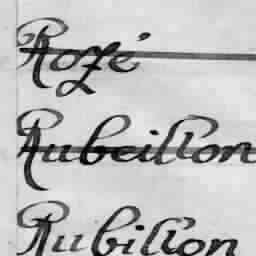 Rozé
Rubeillon
Rubillon